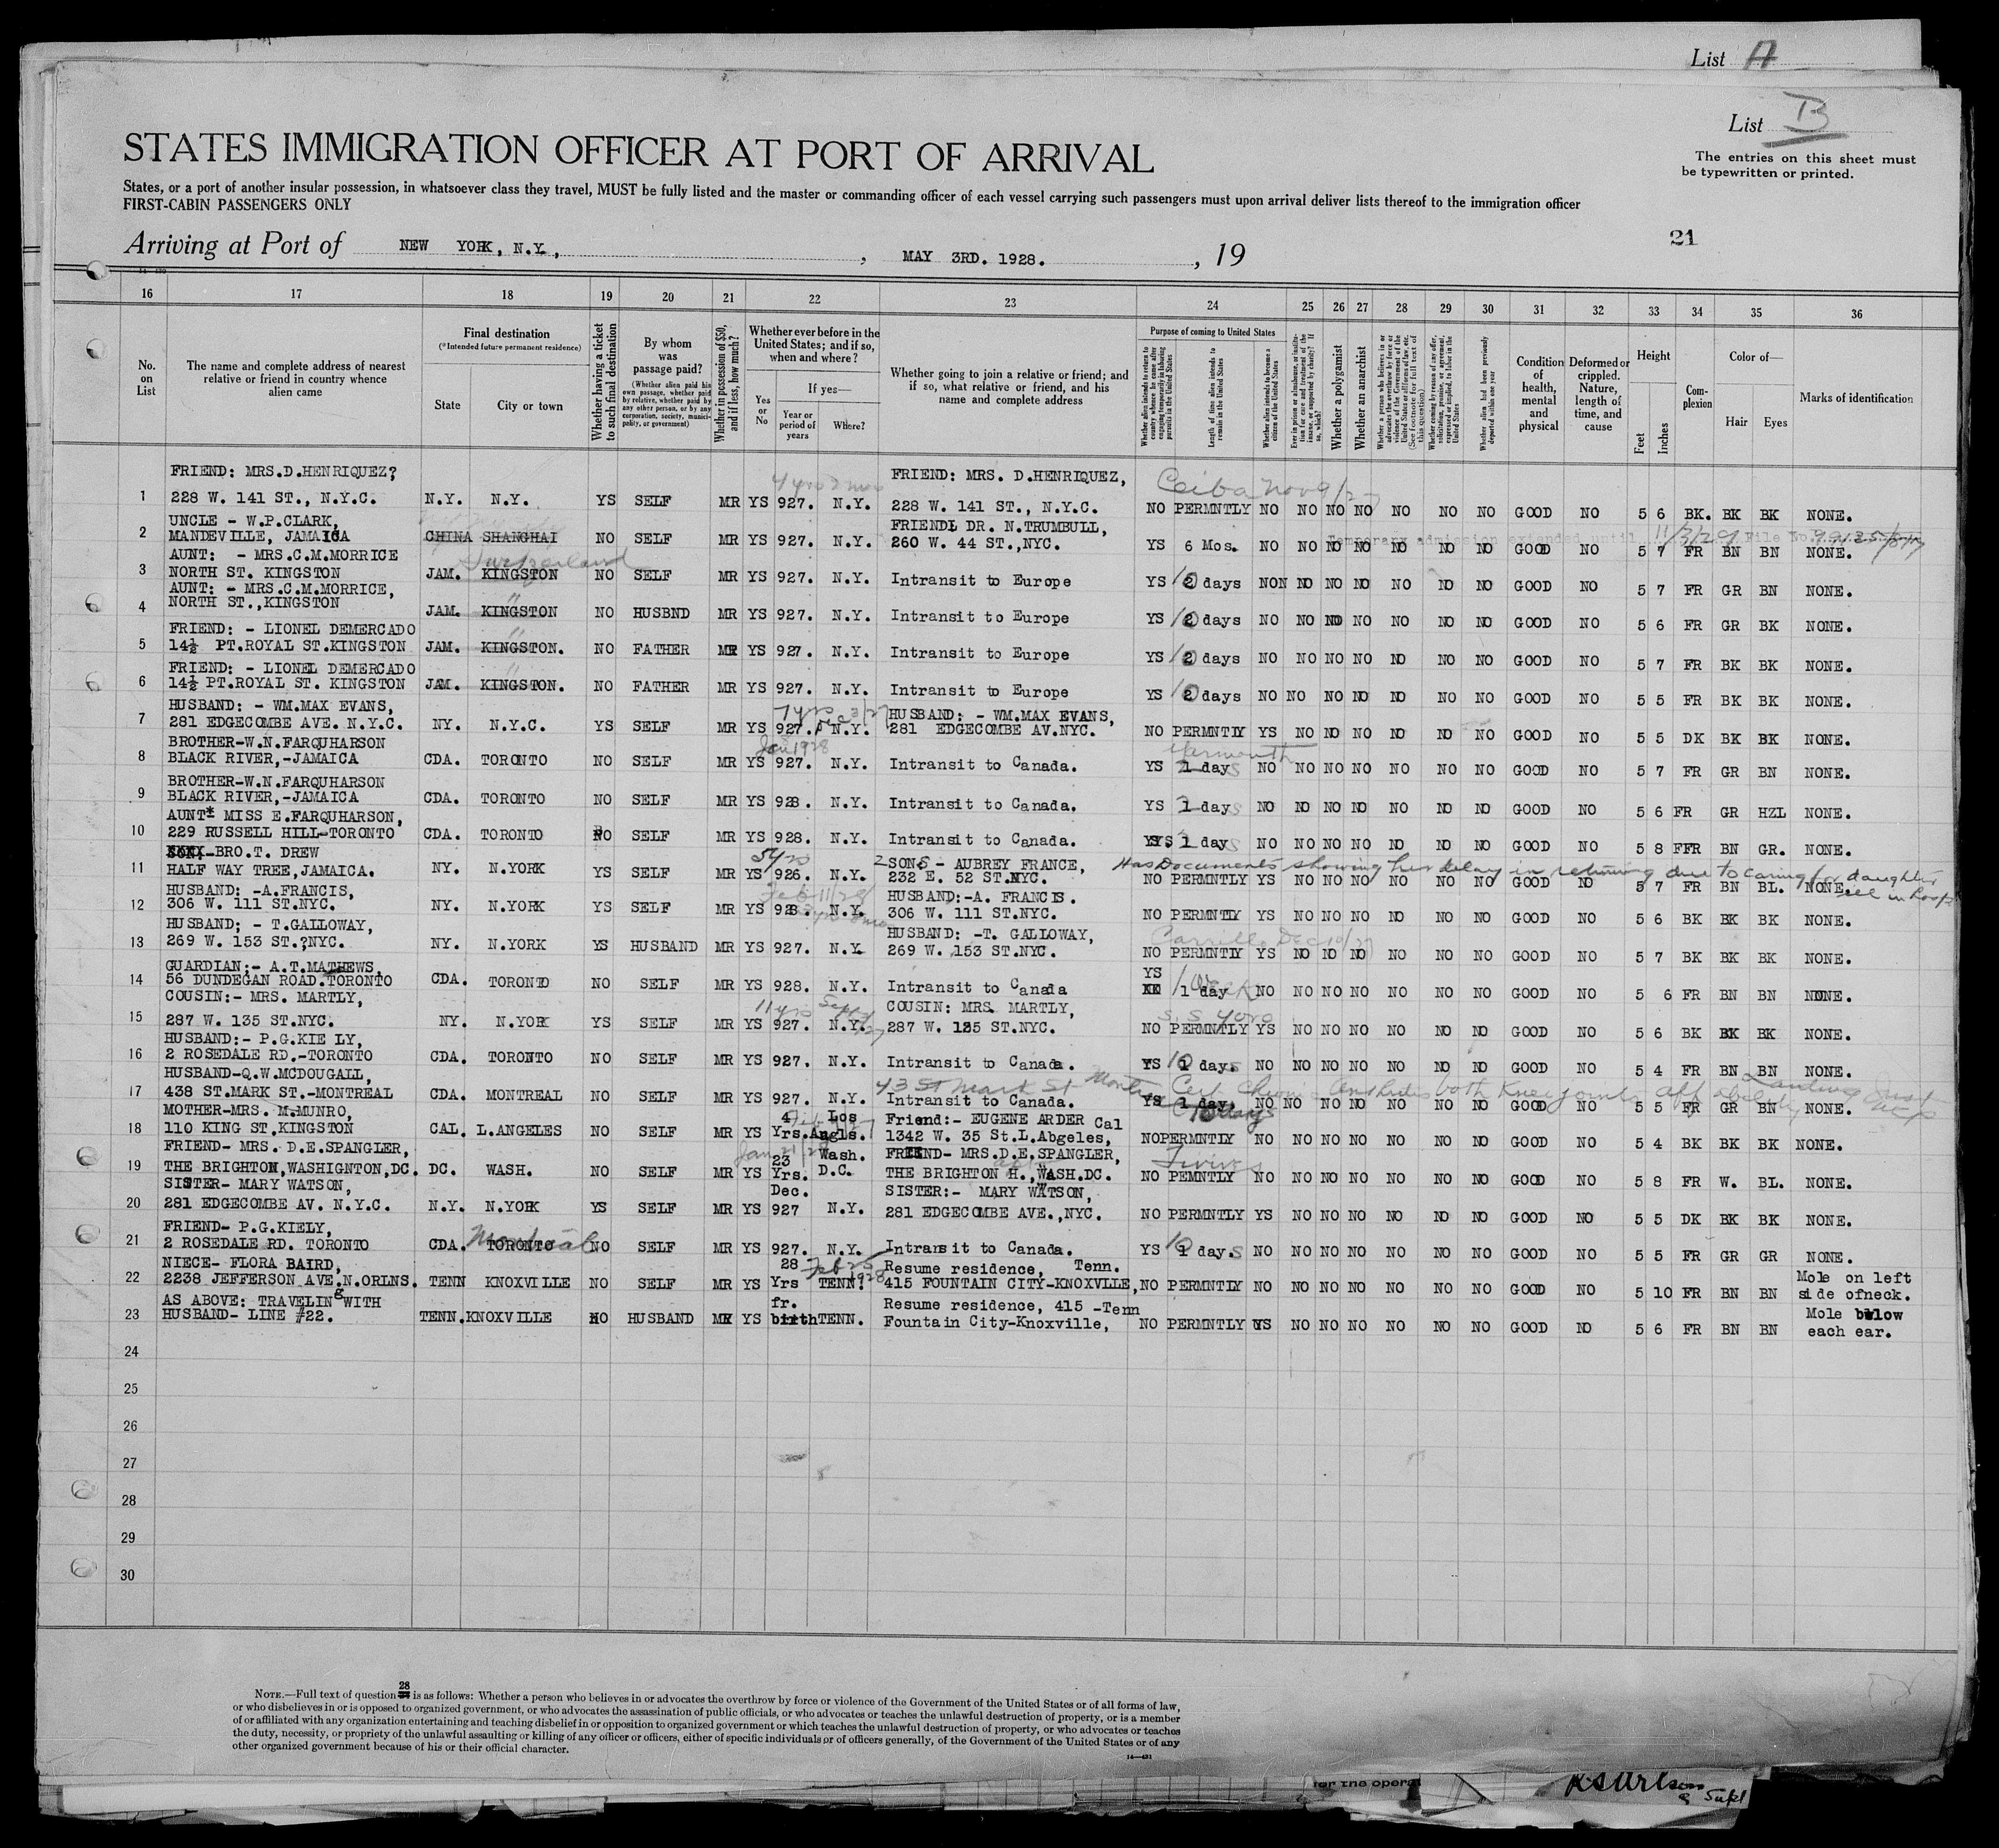 List A
List B
The entries on this sheet must
be typewritten or printed.
STATES IMMIGRATION OFFICER AT PORT OF ARRIVAL
States, or a port of another insular possession, in whatsoever class they travel, MUST be fully listed and the master or commanding officer of each vessel carrying such passengers must upon arrival deliver lists thereof to the immigration officer
FIRST-CABIN PASSENGERS ONLY
21
Arriving at Port of NEW YORK, N.Y., , MAY 3RD. 1928. , 19
16 17 18 19 20 21 22 23 24 25 26 27 28 29 30 31 32 33 34 35 36
No. on List
The name and complete address of nearest relative or friend in country whence alien came
Final destination
(*Intended future permanent residence)
State
City or town
Whether having a ticket to such final destination
By whom was passage paid?
(Whether alien paid his own passage, whether paid by relative, whether paid by any other person, or by any corporation, society, municipality, or government)
Whether in possession of $50, and if less, how much?
Whether ever before in the United States; and if so, when and where?
Yes or No
If yes—
Year or period of years
Where?
Whether going to join a relative or friend; and if so, what relative or friend, and his name and complete address
Purpose of coming to United States
Whether alien intends to return to country whence he came after engaging temporarily in laboring pursuits in the United States
Length of time alien intends to remain in the United States
Whether alien intends to become a citizen of the United States
Ever in prison or almshouse, or institution for care and treatment of the insane, or supported by charity? If so, which?
Whether a polygamist
Whether an anarchist
Whether a person who believes in or advocates the overthrow by force or violence of the Government of the United States or all forms of law, etc. (See footnote for full text of this question)
Whether coming by reason of any offer, solicitation, promise, or agreement, expressed or implied, to labor in the United States
Whether alien had been previously deported within one year
Condition of health, mental and physical
Deformed or crippled. Nature, length of time, and cause
Height
Feet
Inches
Complexion
Color of—
Hair
Eyes
Marks of identification
FRIEND: MRS.D.HENRIQUEZ; FRIEND: MRS. D.HENRIQUEZ,
4 yrs 2 mos Ceiba Nov 9/27
1 228 W. 141 ST., N.Y.C. N.Y. N.Y. YS SELF MR YS 927. N.Y. 228 W. 141 ST., N.Y.C. NO PERMNTLY NO NO NO NO NO NO NO GOOD NO 5 6 BK. BK BK NONE.
UNCLE - W.P.CLARK, FRIEND: DR. N.TRUMBULL,
Temporary admission extended until 11/3/29 File No.
2 MANDEVILLE, JAMAICA CHINA SHANGHAI NO SELF MR YS 927. N.Y. 260 W. 44 ST.,NYC. YS 6 Mos. NO NO NO NO NO NO NO GOOD NO 5 7 FR BN BN NONE.
AUNT: - MRS.C.M.MORRICE Switzerland
3 NORTH ST. KINGSTON JAM. KINGSTON NO SELF MR YS 927. N.Y. Intransit to Europe YS 10 2 days NON NO NO NO NO NO NO GOOD NO 5 7 FR GR BN NONE.
AUNT: - MRS.C.M.MORRICE, "
4 NORTH ST.,KINGSTON JAM. KINGSTON NO HUSBND MR YS 927. N.Y. Intransit to Europe YS 10 2 days NO NO NO NO NO NO NO GOOD NO 5 6 FR GR BK NONE.
FRIEND: - LIONEL DEMERCADO "
5 14½ PT.ROYAL ST.KINGSTON JAM. KINGSTON. NO FATHER MR YS 927. N.Y. Intransit to Europe YS 10 2 days NO NO NO NO NO NO NO GOOD NO 5 7 FR BK BK NONE.
FRIEND: - LIONEL DEMERCADO "
6 14½ PT.ROYAL ST. KINGSTON JAM. KINGSTON. NO FATHER MR YS 927. N.Y. Intransit to Europe YS 10 2 days NO NO NO NO NO NO NO GOOD NO 5 5 FR BK BK NONE.
HUSBAND: - WM.MAX EVANS, 7 yrs HUSBAND: - WM.MAX EVANS,
7 281 EDGECOMBE AVE. N.Y.C. NY. N.Y.C. YS SELF MR YS 927. N.Y. 281 EDGECOMBE AV.NYC. NO PERMNTLY YS NO NO NO NO NO NO GOOD NO 5 5 DK BK BK NONE.
BROTHER-W.N.FARQUHARSON Jan 1928
8 BLACK RIVER,-JAMAICA CDA. TORONTO NO SELF MR YS 927. N.Y. Intransit to Canada. YS 1 days NO NO NO NO NO NO NO GOOD NO 5 7 FR GR BN NONE.
BROTHER-W.N.FARQUHARSON
9 BLACK RIVER,-JAMAICA CDA. TORONTO NO SELF MR YS 928. N.Y. Intransit to Canada. YS 1 days NO NO NO NO NO NO NO GOOD NO 5 6 FR GR HZL NONE.
AUNT* MISS E.FARQUHARSON,
10 229 RUSSELL HILL-TORONTO CDA. TORONTO NO SELF MR YS 928. N.Y. Intransit to Canada. YS 1 days NO NO NO NO NO NO NO GOOD NO 5 8 FFR BN GR. NONE.
BRO.T. DREW 5 yrs 2 SONS - AUBREY FRANCE, Has Documents showing her delay in returning due to caring for daughter
11 HALF WAY TREE,JAMAICA. NY. N.YORK YS SELF MR YS 926. N.Y. 232 E. 52 ST.NYC. NO PERMNTLY YS NO NO NO NO NO NO GOOD NO 5 7 FR BN BL. NONE.
HUSBAND: -A.FRANCIS, Feb 11/28 HUSBAND:-A. FRANCIS.
12 306 W. 111 ST.NYC. NY. N.YORK YS SELF MR YS 928. N.Y. 306 W. 111 ST.NYC. NO PERMNTLY YS NO NO NO NO NO NO GOOD NO 5 6 BK BK BK NONE.
HUSBAND; - T.GALLOWAY, HUSBAND: -T. GALLOWAY, Carrillo Dec 10/27
13 269 W. 153 ST.,NYC. NY. N.YORK YS HUSBAND MR YS 927. N.Y. 269 W. 153 ST.NYC. NO PERMNTLY YS NO NO NO NO NO NO GOOD NO 5 7 BK BK BK NONE.
GUARDIAN;- A.T.MATHEWS, YS 1 Week
14 56 DUNDEGAN ROAD.TORONTO CDA. TORONTO NO SELF MR YS 928. N.Y. Intransit to Canada 1 day NO NO NO NO NO NO NO GOOD NO 5 6 FR BN BN NONE.
COUSIN:- MRS. MARTLY, 11 yrs Sept COUSIN: MRS. MARTLY, S.S. Toro
15 287 W. 135 ST.NYC. NY. N.YORK YS SELF MR YS 927. N.Y. 287 W. 135 ST.NYC. NO PERMNTLY YS NO NO NO NO NO NO GOOD NO 5 6 BK BK BK NONE.
HUSBAND:- P.G.KIE LY,
16 2 ROSEDALE RD.-TORONTO CDA. TORONTO NO SELF MR YS 927. N.Y. Intransit to Canada. YS 10 1 days NO NO NO NO NO NO NO GOOD NO 5 4 FR BN BN NONE.
HUSBAND-Q.W.MCDOUGALL, 43 St Mark St Cert. both Knee joints
17 438 ST.MARK ST.-MONTREAL CDA. MONTREAL NO SELF MR YS 927. N.Y. Intransit to Canada. YS 1 day, 10 days NO NO NO NO NO NO NO GOOD NO 5 5 FR GR BN NONE.
MOTHER-MRS. M.MUNRO, 4 Los Friend:- EUGENE ARDER Cal
18 110 KING ST,KINGSTON CAL. L.ANGELES NO SELF MR YS Yrs.Angls. 1342 W. 35 St.L.Abgeles, NO PERMNTLY NO NO NO NO NO NO NO GOOD NO 5 4 BK BK BK NONE.
FRIEND- MRS. D.E.SPANGLER, 23 Wash. FRIEND- MRS.D.E.SPANGLER,
19 THE BRIGHTON,WASHIGNTON,DC. DC. WASH. NO SELF MR YS Yrs. D.C. THE BRIGHTON H.,WASH.DC. NO PEMNTLY NO NO NO NO NO NO NO GOOD NO 5 8 FR W. BL. NONE.
SISTER- MARY WATSON, Dec. SISTER:- MARY WATSON,
20 281 EDGECOMBE AV. N.Y.C. N.Y. N.YORK YS SELF MR YS 927 N.Y. 281 EDGECOMBE AVE.,NYC. NO PERMNTLY YS NO NO NO NO NO NO GOOD NO 5 5 DK BK BK NONE.
FRIEND- P.G.KIELY, Montreal
21 2 ROSEDALE RD. TORONTO CDA. TORONTO NO SELF MR YS 927. N.Y. Intransit to Canada. YS 10 1 days NO NO NO NO NO NO NO GOOD NO 5 5 FR GR GR NONE.
NIECE- FLORA BAIRD, 28 Feb 25 1928 Resume residence, Tenn. Mole on left
22 2238 JEFFERSON AVE.N.ORLNS. TENN KNOXVILLE NO SELF MR YS Yrs TENN. 415 FOUNTAIN CITY-KNOXVLLE, NO PERMNTLY NO NO NO NO NO NO NO GOOD NO 5 10 FR BN BN side ofneck.
AS ABOVE: TRAVELINg WITH fr. Resume residence, 415 -Tenn Mole below
23 HUSBAND- LINE #22. TENN.KNOXVILLE NO HUSBAND MR YS birth TENN. Fountain City-Knoxville, NO PERMNTLY YS NO NO NO NO NO NO GOOD NO 5 6 FR BN BN each ear.
24
25
26
27
28
29
30
NOTE.—Full text of question 28 is as follows: Whether a person who believes in or advocates the overthrow by force or violence of the Government of the United States or of all forms of law,
or who disbelieves in or is opposed to organized government, or who advocates the assassination of public officials, or who advocates or teaches the unlawful destruction of property, or is a member
of or affiliated with any organization entertaining and teaching disbelief in or opposition to organized government or which teaches the unlawful destruction of property, or who advocates or teaches
the duty, necessity, or propriety of the unlawful assaulting or killing of any officer or officers, either of specific individuals or of officers generally, of the Government of the United States or of any
other organized government because of his or their official character.
14—431
for the opera